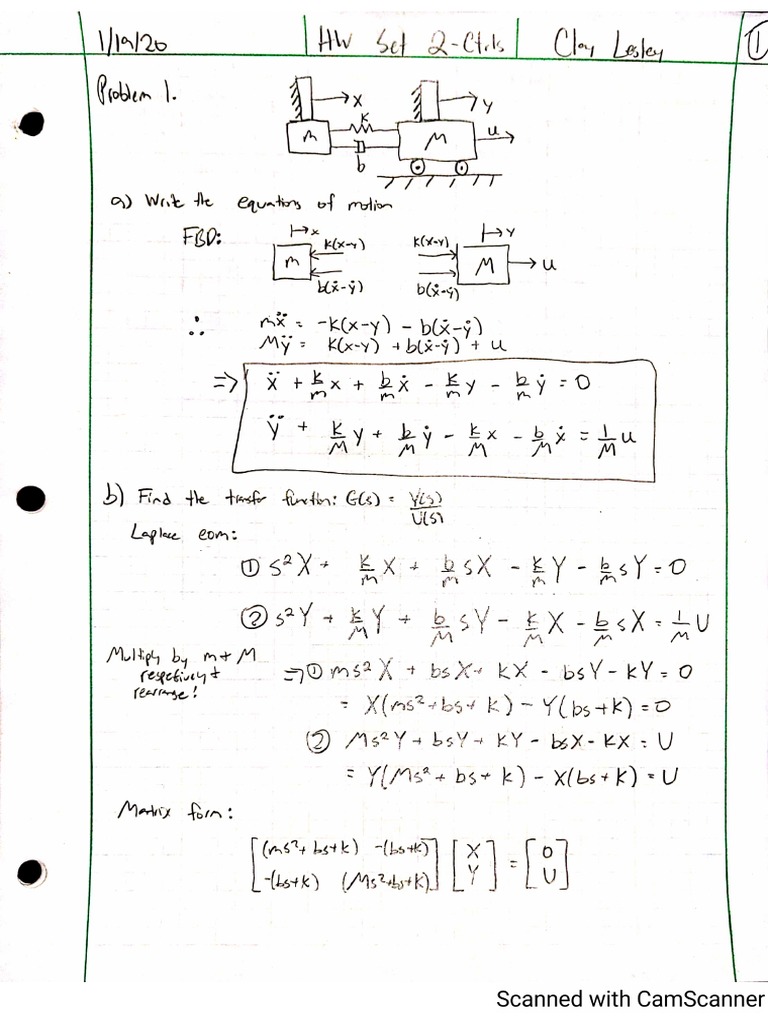 1/19/20 HW Set 2-Ctrls Clay Lesley 1
Problem 1.
x y
m k b M u
a) Write the equations of motion
FBD:
x y
m k(x-y) k(x-y) M u
b(ẋ-ẏ) b(ẋ-ẏ)
∴ mẍ = -k(x-y) - b(ẋ-ẏ)
Mÿ = k(x-y) + b(ẋ-ẏ) + u
⇒ ẍ + k/m x + b/m ẋ - k/m y - b/m ẏ = 0
ÿ + k/M y + b/M ẏ - k/M x - b/M ẋ = 1/M u
b) Find the transfer function: G(s) = Y(s)/U(s)
Laplace eom:
① s²X + k/m X + b/m sX - k/m Y - b/m sY = 0
② s²Y + k/M Y + b/M sY - k/M X - b/M sX = 1/M U
Multiply by m + M
respectively +
rearrange!
⇒ ① ms²X + bsX + kX - bsY - kY = 0
= X(ms²+bs+k) - Y(bs+k) = 0
② Ms²Y + bsY + kY - bsX - kX = U
= Y(Ms² + bs + k) - X(bs+k) = U
Matrix form:
[(ms²+bs+k) -(bs+k)] [X] = [0]
[-(bs+k) (Ms²+bs+k)] [Y] [U]
Scanned with CamScanner